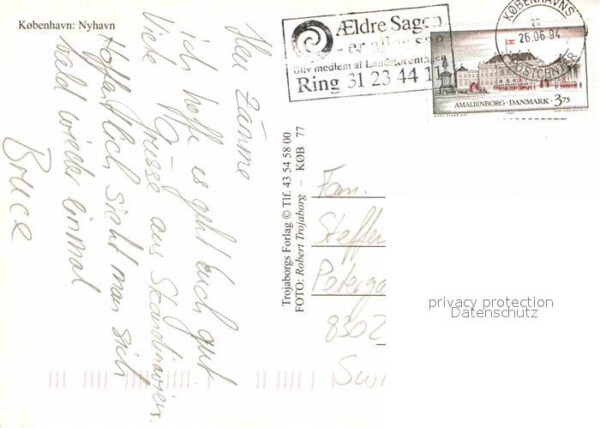 København: Nyhavn
Hoi zämme
ich hoffe es gut Euch gut
Viele Grüsse aus Skandinavien.
Hoffentlich sieht man sich
bald wieder einmal
Bruce
Trojaborgs Forlag © Tlf. 43 54 58 00
FOTO: Robert Trojaborg – KØB 77
Ældre Sagen
- er alles sag
Bliv medlem af Landsforeningen
Ring 31 23 44 11
KØBENHAVNS
22
26.06.94
POSTCENTER
AMALIENBORG · DANMARK 3.75
Fam.
Steffen
8302
privacy protection
Datenschutz